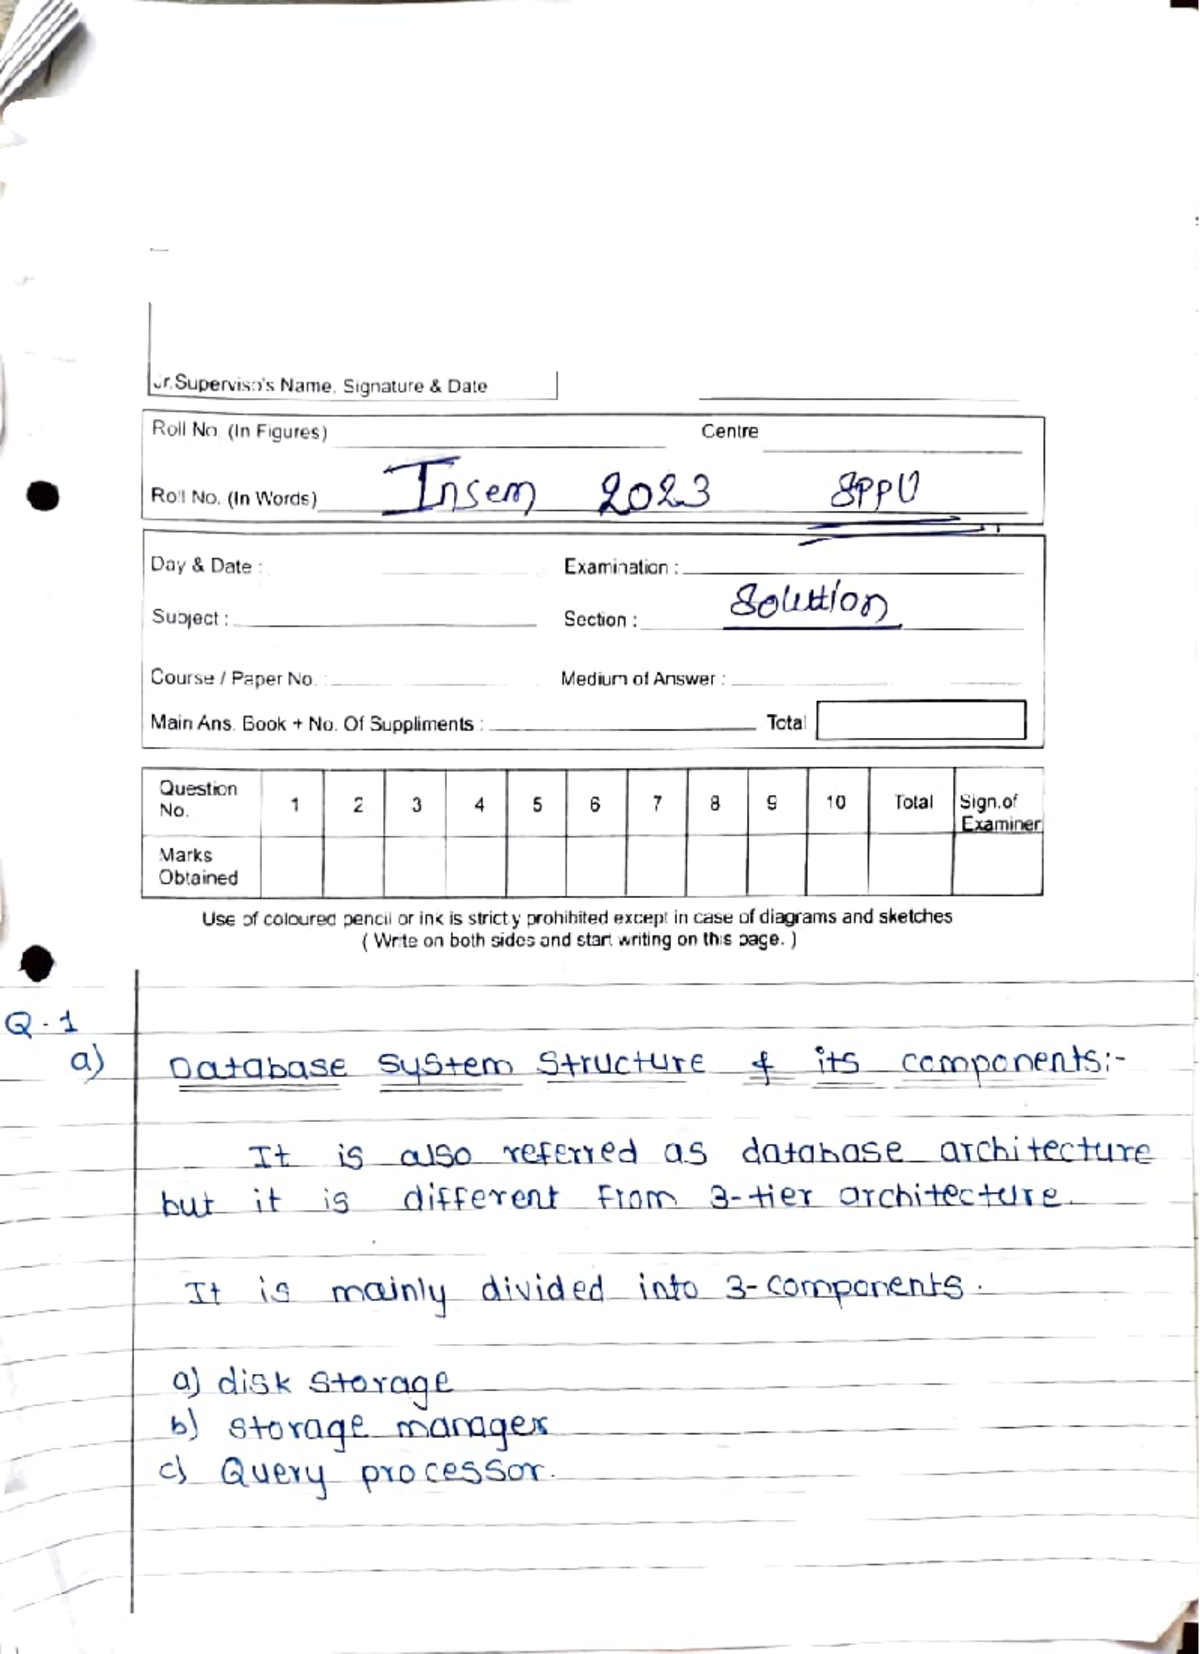 Jr.Superviso's Name, Signature & Date
Roll No. (In Figures) Centre
Roll No. (In Words) Insem 2023 SPPU
Day & Date : Examination :
Subject : Section : Solution
Course / Paper No. : Medium of Answer :
Main Ans. Book + No. Of Suppliments : Total
Question No. 1 2 3 4 5 6 7 8 9 10 Total Sign.of Examiner
Marks Obtained
Use of coloured pencil or ink is strictly prohibited except in case of diagrams and sketches
( Write on both sides and start writing on this page. )
Q-1
a) Database System Structure & its components:-
It is also referred as database architecture
but it is different from 3-tier architecture.
It is mainly divided into 3-components.
a) disk storage
b) storage manager
c) Query processor.